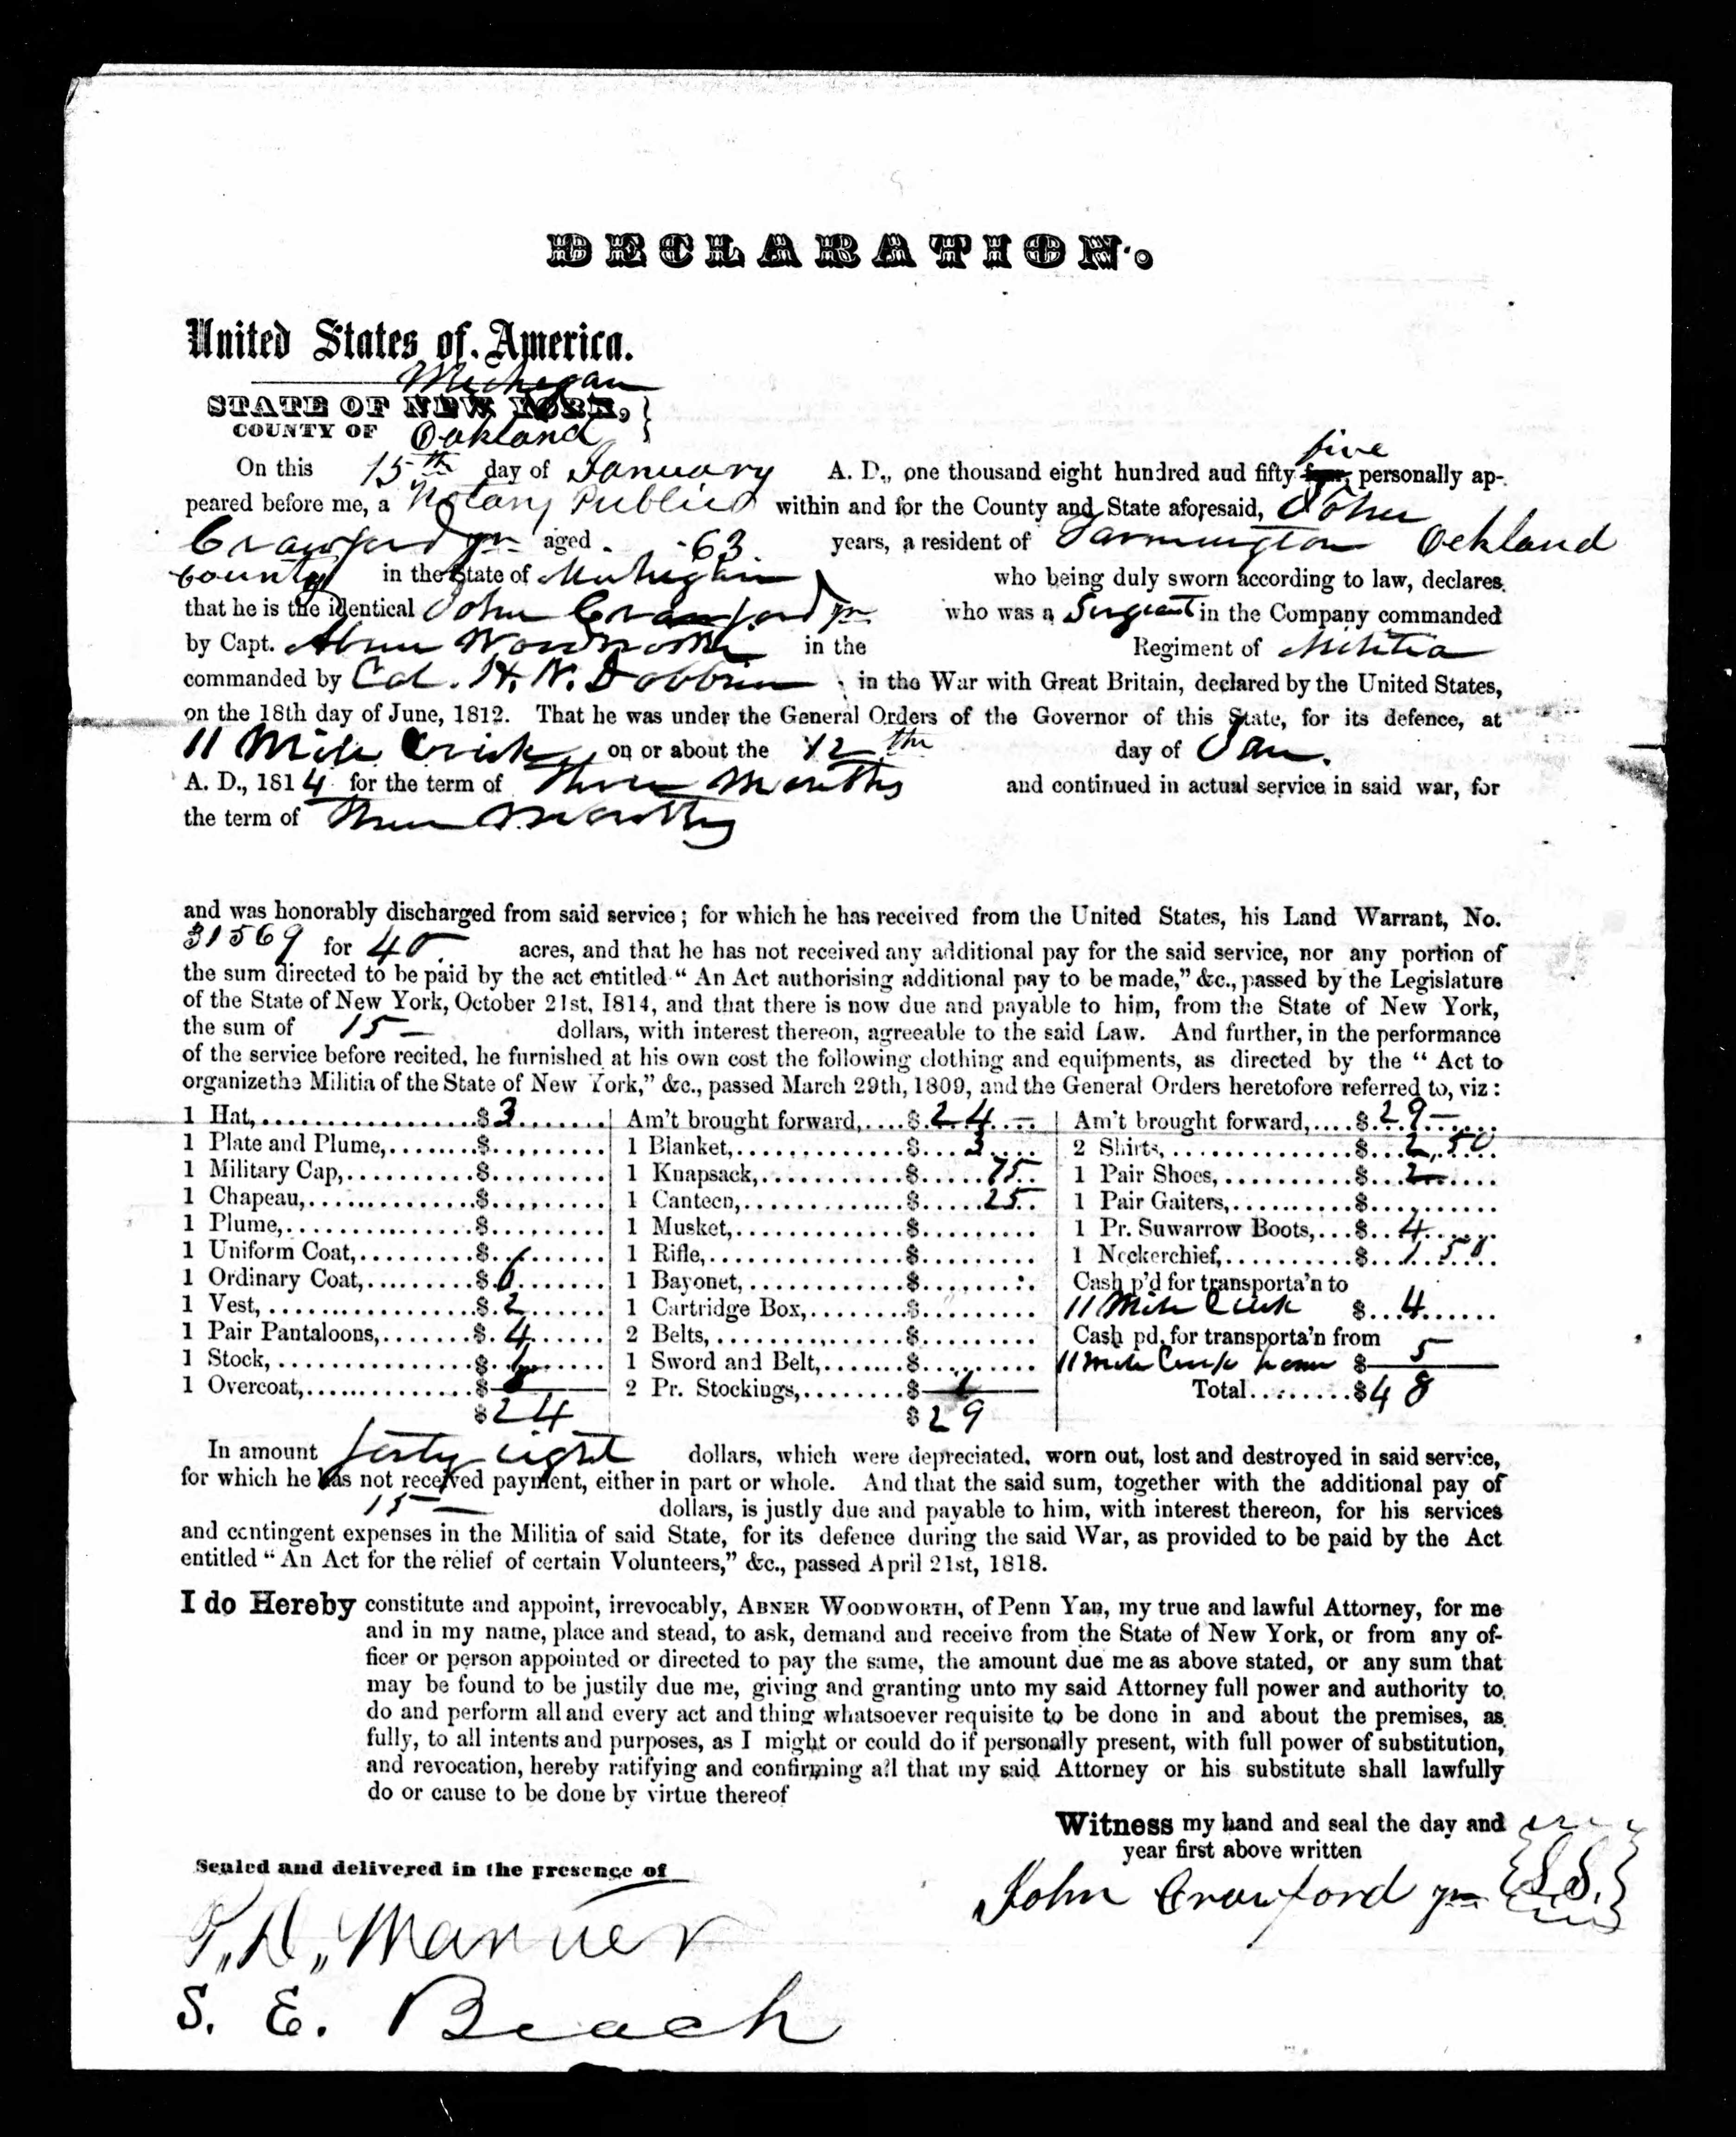 DECLARATION.
United States of America.
Michigan
STATE OF NEW YORK,
COUNTY OF Oakland
On this 15th day of January A. D., one thousand eight hundred and fifty five four, personally ap-
peared before me, a Notary Public within and for the County and State aforesaid, John
Crawford Jr aged 63 years, a resident of Farmington Oakland
County in the State of Michigan who being duly sworn according to law, declares
that he is the identical John Crawford Jr who was a Sergeant in the Company commanded
by Capt. Abner Woodworth in the Regiment of Militia
commanded by Col. H. W. Dobbin in the War with Great Britain, declared by the United States,
on the 18th day of June, 1812. That he was under the General Orders of the Governor of this State, for its defence, at
11 Mile Creek on or about the 12th day of Jan.
A. D., 1814 for the term of Three Months and continued in actual service in said war, for
the term of Three Months
and was honorably discharged from said service; for which he has received from the United States, his Land Warrant, No.
31569 for 40 acres, and that he has not received any additional pay for the said service, nor any portion of
the sum directed to be paid by the act entitled "An Act authorising additional pay to be made," &c., passed by the Legislature
of the State of New York, October 21st, 1814, and that there is now due and payable to him, from the State of New York,
the sum of 15 – dollars, with interest thereon, agreeable to the said Law. And further, in the performance
of the service before recited, he furnished at his own cost the following clothing and equipments, as directed by the "Act to
organizethe Militia of the State of New York," &c., passed March 29th, 1809, and the General Orders heretofore referred to, viz:
1 Hat,....................$3
1 Plate and Plume,........$
1 Military Cap,...........$
1 Chapeau,................$
1 Plume,..................$
1 Uniform Coat,...........$
1 Ordinary Coat,..........$
1 Vest,...................$2
1 Pair Pantaloons,........$4
1 Stock,..................$1
1 Overcoat,...............$
$24
Am't brought forward,....$24 –
1 Blanket,...............$3
1 Knapsack,..............$75
1 Canteen,...............$25
1 Musket,................$
1 Rifle,.................$
1 Bayonet,...............$
1 Cartridge Box,.........$
2 Belts,.................$
1 Sword and Belt,........$
2 Pr. Stockings,.........$1
$29
Am't brought forward,....$29 –
2 Shirts,................$2,50
1 Pair Shoes,............$2
1 Pair Gaiters,..........$
1 Pr. Suwarrow Boots,....$4
1 Neckerchief,...........$1.50
Cash p'd for transporta'n to
11 Mile Creek $4
Cash pd. for transporta'n from
11 Mile Creek home $5
Total.........$48
In amount forty eight dollars, which were depreciated, worn out, lost and destroyed in said service,
for which he has not received payment, either in part or whole. And that the said sum, together with the additional pay of
15 – dollars, is justly due and payable to him, with interest thereon, for his services
and contingent expenses in the Militia of said State, for its defence during the said War, as provided to be paid by the Act
entitled "An Act for the relief of certain Volunteers," &c., passed April 21st, 1818.
I do Hereby constitute and appoint, irrevocably, ABNER WOODWORTH, of Penn Yan, my true and lawful Attorney, for me
and in my name, place and stead, to ask, demand and receive from the State of New York, or from any of-
ficer or person appointed or directed to pay the same, the amount due me as above stated, or any sum that
may be found to be justily due me, giving and granting unto my said Attorney full power and authority to
do and perform all and every act and thing whatsoever requisite to be done in and about the premises, as
fully, to all intents and purposes, as I might or could do if personally present, with full power of substitution,
and revocation, hereby ratifying and confirming all that my said Attorney or his substitute shall lawfully
do or cause to be done by virtue thereof
Witness my hand and seal the day and
year first above written
Sealed and delivered in the presence of
John Crawford Jr {L.S.}
S. E. Beach